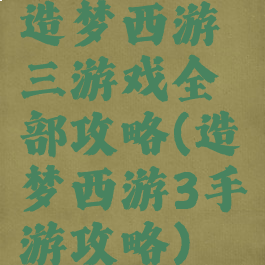 造梦西游
三游戏全
部攻略(造
梦西游3手
游攻略)